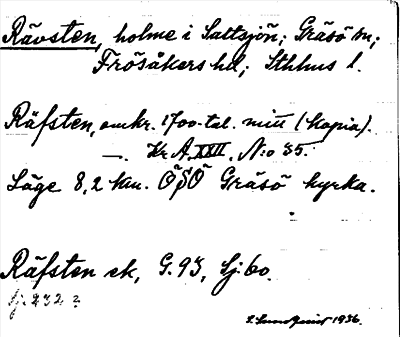 Rävsten, holme i Saltsjön; Gräsö sn;
Frösåkers hd; Sthlms l.
Räfsten, omkr. 1700-tal. mitt (kopia).
—. Kr. A. XXII. N:o 35.
Läge 8,2 km. ÖSÖ Gräsö kyrka.
Räfsten ek, G. 93, Sj. 60.
Sj. 232 ?
1936.